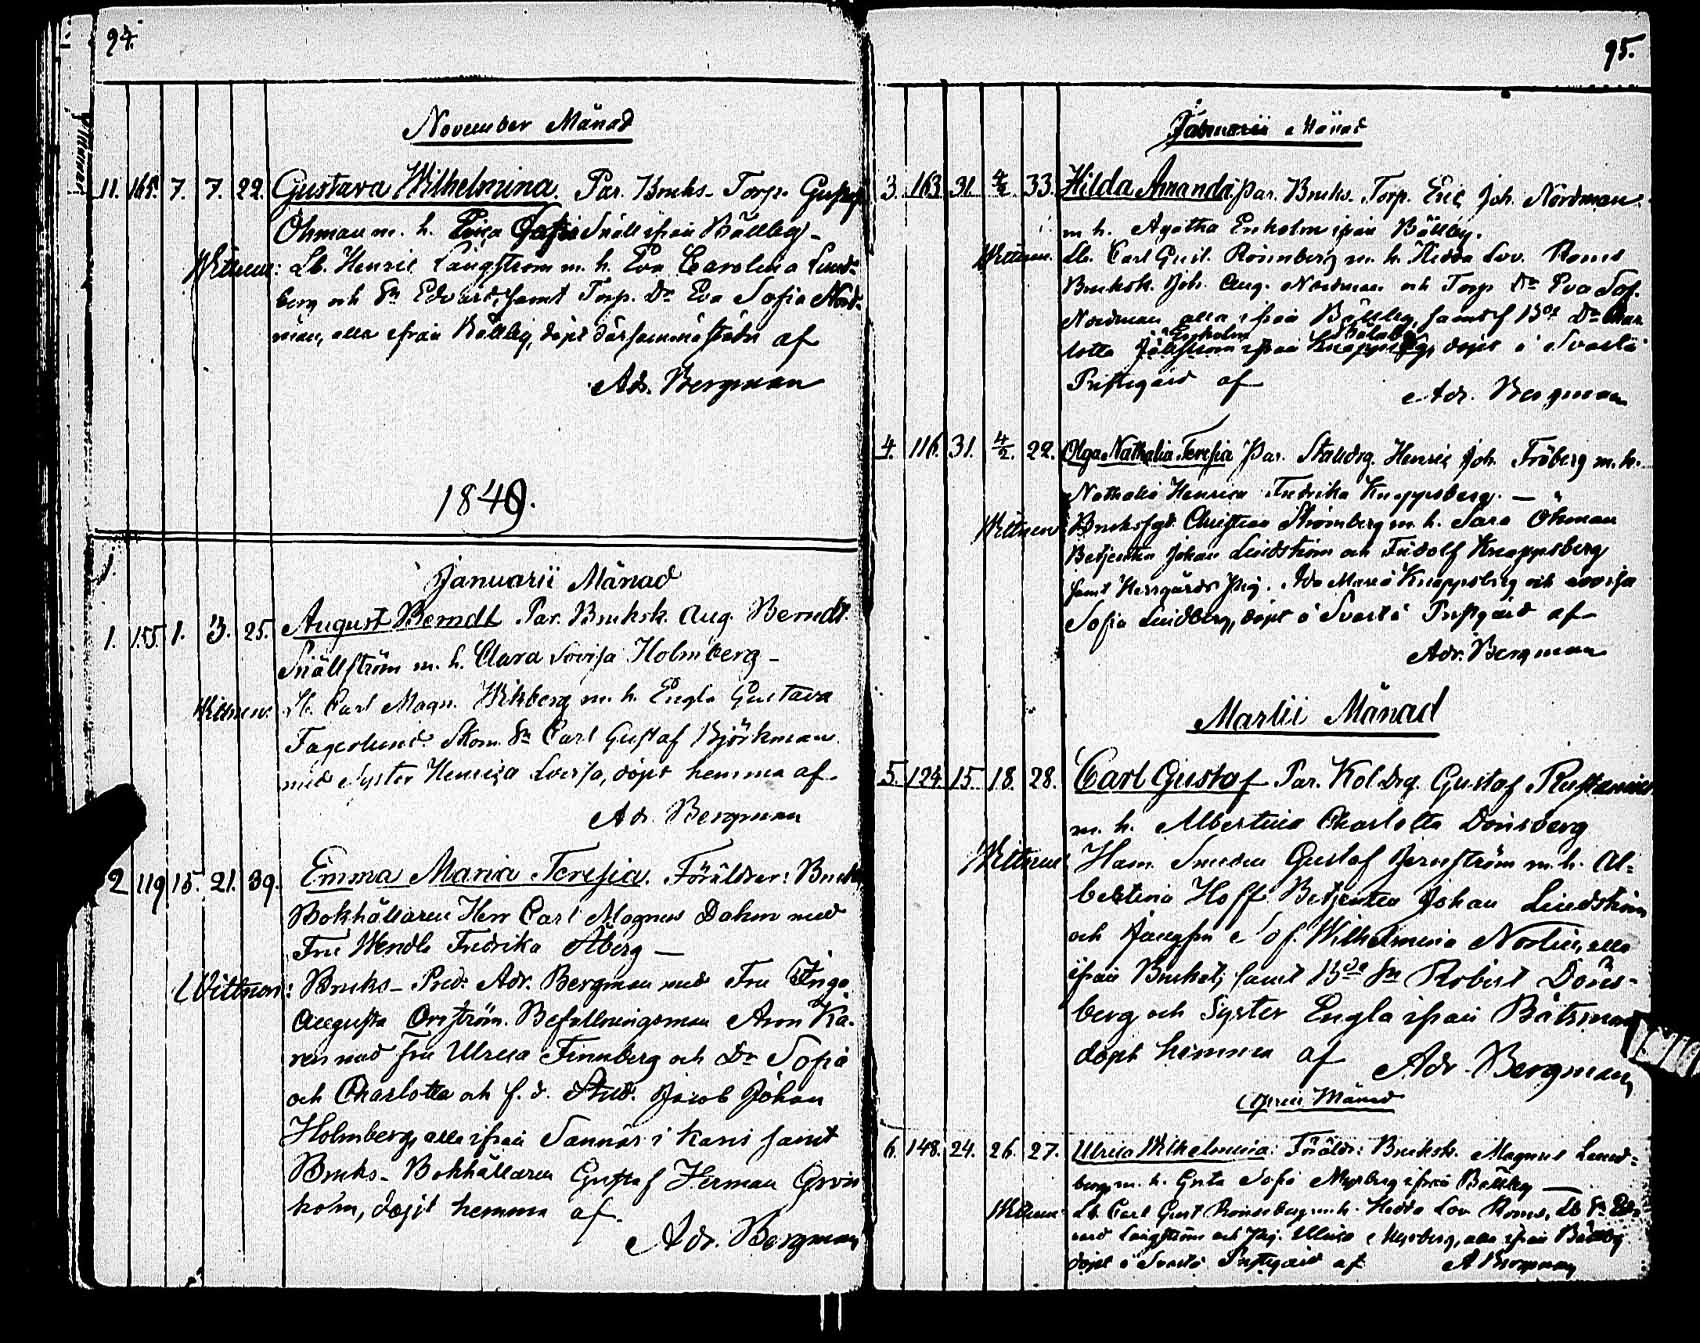 94.
November Månad
11. 165. 7. 7. 22. Gustava Wilhelmina. Par. Bruks-Torp. Gustaf
Öhman m. h. Snäll ifrån Bålleby -
Wittnen: Lb. Henric Långström m. h. Eva Carolina Lund-
berg och Dr. Edvard, samt Torp. Dr Eva Sofia Nord-
man, alla ifrån Bålleby, döpt därsammastädes af
Adr. Bergman
1849.
Januarii Månad
1. 155. 1. 3. 25. August Berndt Par. Bruksk. Aug. Berndt
Snällström m. h. Clara Lovisa Holmberg -
Wittnen: Lb. Carl Magn. Wikberg m. h. Engla Gustava
Fagerlund. Skom. Carl Gustaf Björkman
med Syster Henrica Lovisa, döpt hemma af
Adr. Bergman
2 119 15. 21. 39. Emma Maria Teresia. Föräldrar: Bruks
Bokhållaren Herr Carl Magnus Dahm med
Fru Wendla Fredrika Åberg -
Wittnen: Bruks-Pred. Adr. Bergman med Fru Inga
Augusta Örnström. Befallningsman Aron Ka-
ren med fru Ulrica Finnberg och Dr Sofia
och Charlotta och f. d. Stud. Jacob Johan
Holmberg, alla ifrån Sannäs i Karis samt
Bruks-Bokhållaren Gustaf Herman
holm, döpt hemma af
Adr. Bergman
95.
Januarii Månad
3. 163. 31. 4/2 33. Hilda Amanda, Par. Bruks-Torp. Eric Joh. Nordman
m h. Agatha Enholm ifrån Bålleby.
Wittnen. Lb. Carl Gust. Rönnberg m. h. Hedda Lov. Roms
Bruksk. Joh. Aug. Nordman och Torp Dr Eva Sof.
Nordman alla ifrån Bålleby, samt Bor Dr Char
Enholm
lotta ifrån döpt i Svartå
Prästgård af
Adr. Bergman
4. 116. 31. 4/2. 22. Olga Nathalia Teresia Par. Stalldrg. Henric Joh. Fröberg m. h.
Nathalia Henrica Fredrika Knappsberg. -
Wittnen: Bruksfgd. Christian Strömberg m. h. Sara Öhman
Betjenten Johan Lindström och Fridolf Knappsberg
samt Herrgårds Pig. Ida Maria Knappsberg och Lovisa
Sofia Lindberg, döpt i Svartå Prästgård af
Adr. Bergman
Martii Månad
5. 124. 15. 18. 28. Carl Gustaf Par. Koldrg. Gustaf
m. h. Albertina Charlotta Dönsberg
Wittnen: Ham. Smeden Gustaf Jernström m. h. Al-
bertina Hoff Betjenten Johan Lindström
och Jungfru Sof. Wilhelmina Norlin, alla
ifrån Bruket; samt Robert Döns-
berg och Syster Engla ifrån Båtsman
döpt hemma af
Adr. Bergman
April Månad
6. 148. 24. 26. 27. Ulrica Wilhelmina: Föräldr: Bruksk. Magnus Lund-
berg m. h. Greta Sofia Myrberg ifrån Bålleby -
Wittnen Lb. Carl Gust Rönnberg m. h. Hedda Lov Roms, Lb Dr Ed-
vard Långström och Pig. Ulrica Myrberg, alla ifrån Bålleby
döpt i Svartå Prästgård af A Bergman